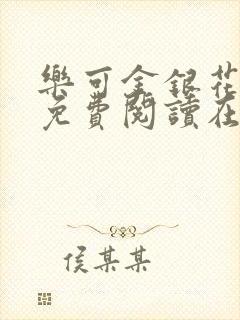 樂可金銀花
免費閱讀在
侯某某